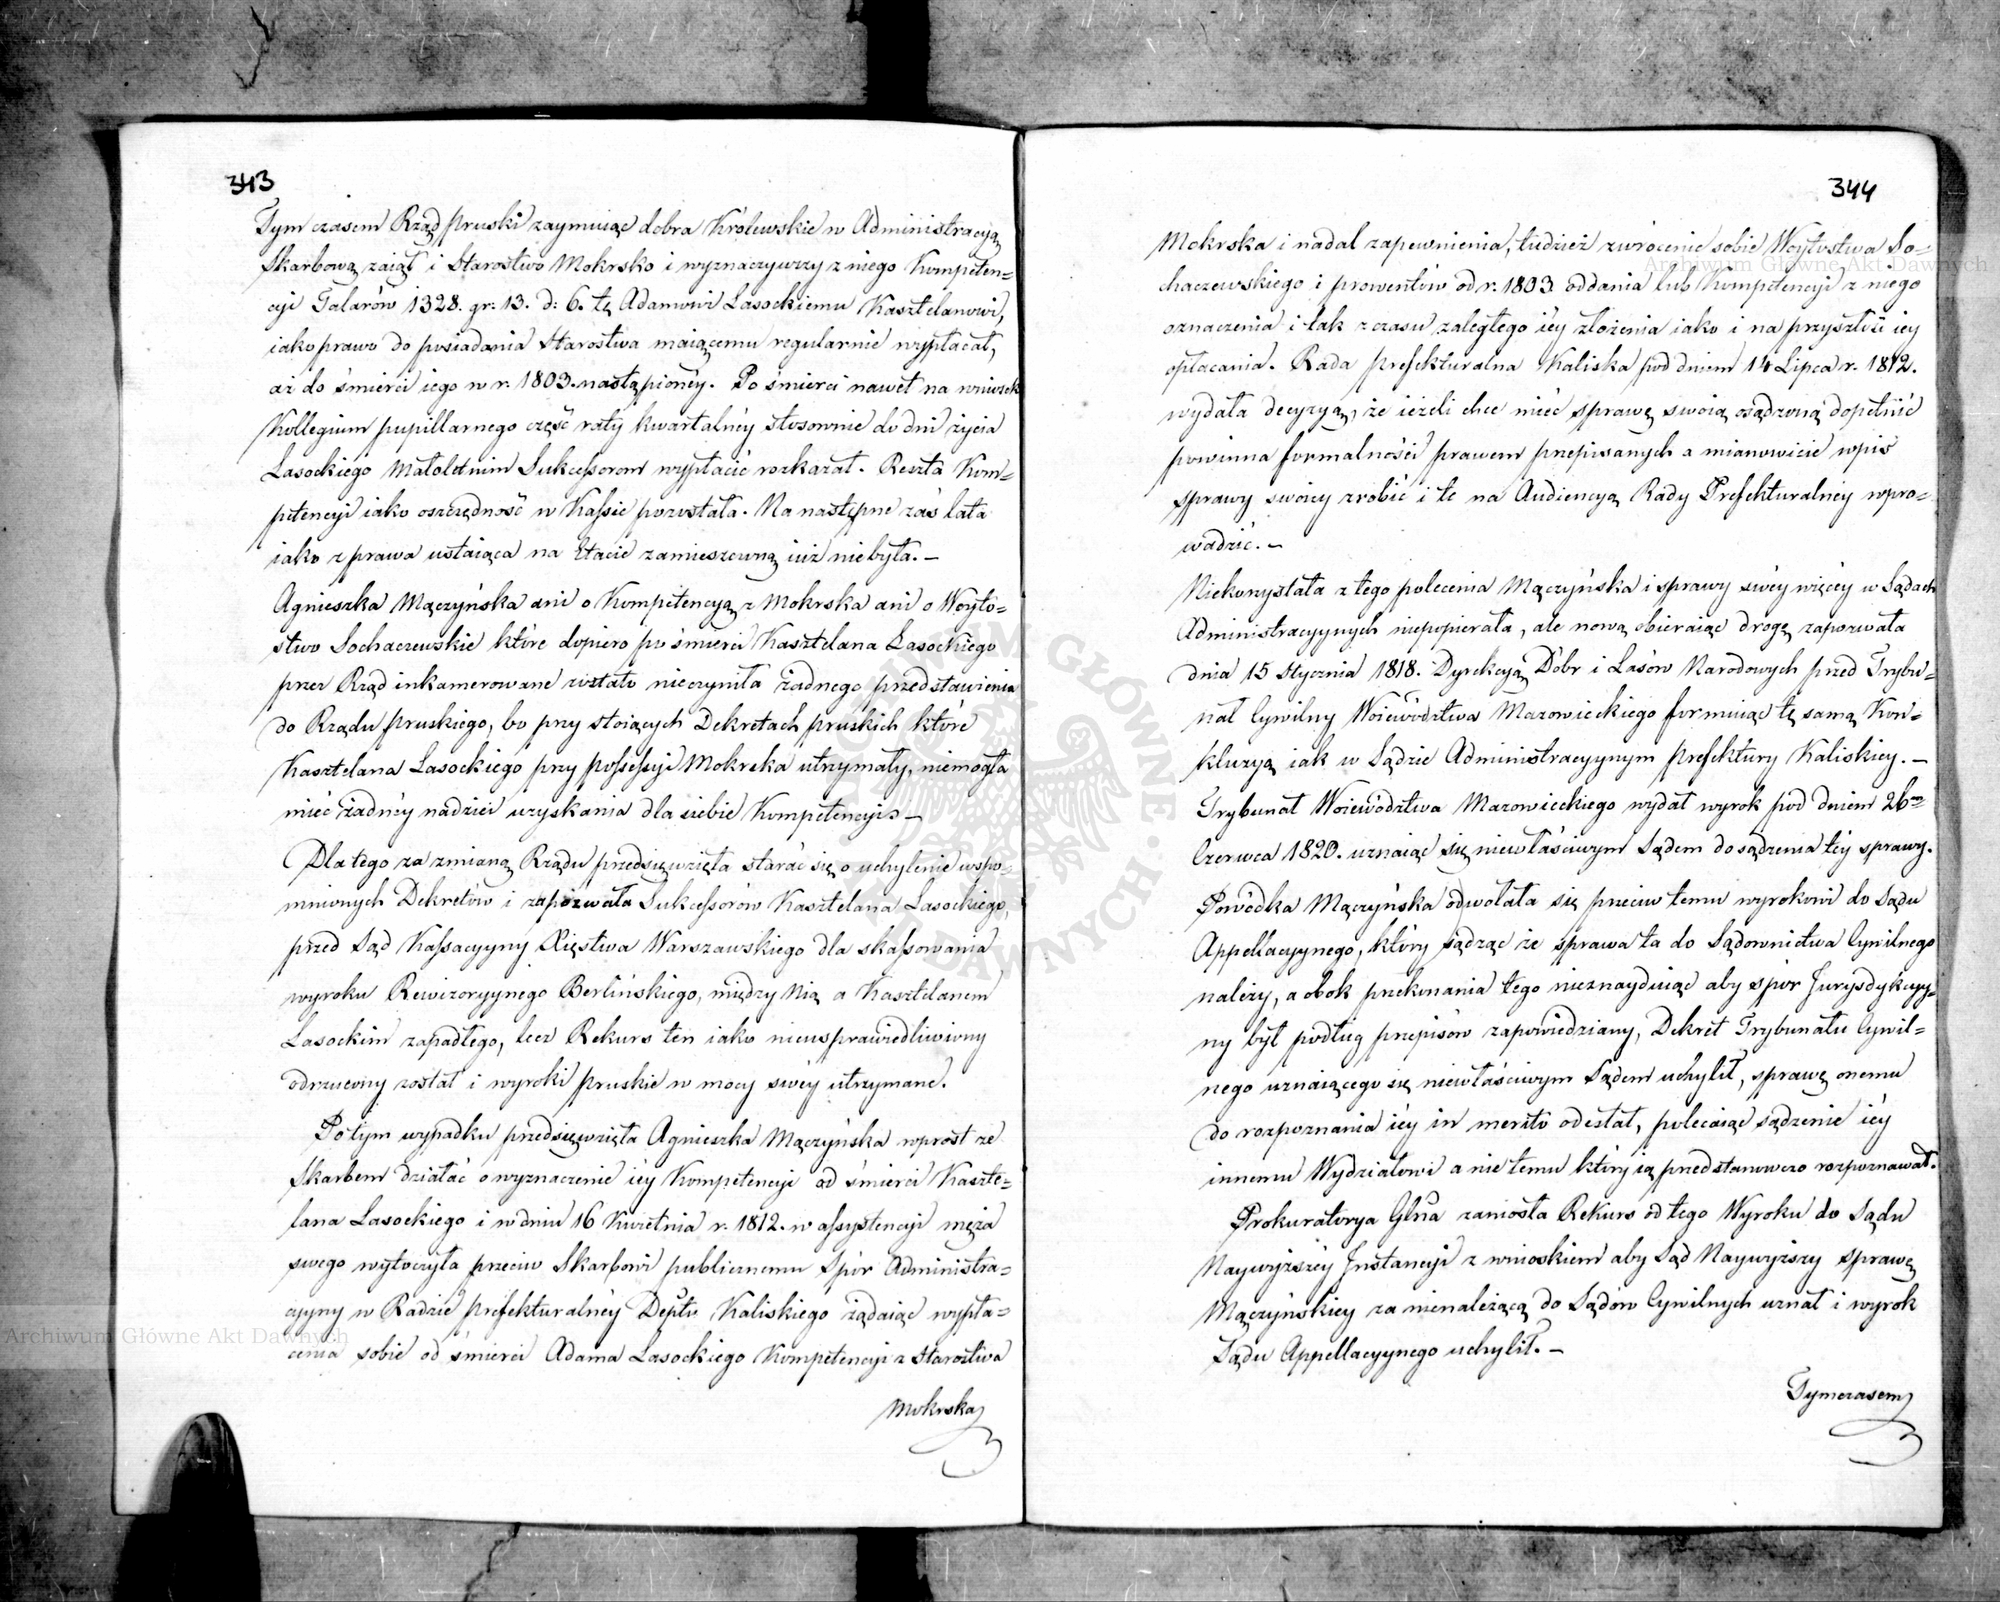 343
Tym czasem Rząd pruski zaymuiąc dobra Królewskie w Administracyą
Skarbową zaiął i Starostwo Mokrsko i wyznaczywszy z niego Kompeten=
cyi Talarów 1328. gr: 13. d: 6. tę Adamowi Lasockiemu Kasztelanowi,
iako prawo do posiadania Starostwa maiącemu regularnie wypłacał,
aż do śmierci iego w r. 1803. nastąpionéy. Po śmierci nawet na wniosek
Kollegium pupillarnego część raty kwartalnéy stosownie do dni życia
Lasockiego Małoletnim Sukcessorom wypłacić rozkazał. Reszta Kom=
petencyi iako oszczędność w Kassie pozostała. Na następne zaś lata
iako z prawa ustaiąca na Etacie zamieszczoną iuż niebyła. –
Agnieszka Mączyńska ani o Kompetencyą z Mokrska ani o Woyto=
stwo Sochaczewskie które dopiero po śmierci Kasztelana Lasockiego
przez Rząd inkamerowane zostało nieczyniła żadnego przedstawienia
do Rządu pruskiego, bo przy stoiących Dekretach pruskich które
Kasztelana Lasockiego przy possessyi Mokrska utrzymały, niemogła
mieć żadnéy nadziei uzyskania dla siebie Kompetencyi. –
Dla tego za zmianą Rządu przedsięwzięła starać się o uchylenie wspo=
mnionych Dekretów i zapozwała Sukcessorów Kasztelana Lasockiego,
przed Sąd Kassacyyny Xięstwa Warszawskiego dla skassowania
wyroku Rewizoryynego Berlińskiego, między Nią a Kasztelanem
Lasockim zapadłego, lecz Rekurs ten iako nieusprawiedliwiony
odrzucony został i wyroki pruskie w mocy swéy utrzymane.
Po tym wypadku przedsięwzięła Agnieszka Mączyńska wprost ze
Skarbem działać o wyznaczenie iéy Kompetencyi od śmierci Kaszte=
lana Lasockiego i w dniu 16 Kwietnia r. 1812. w assystencyi męża
swego wytoczyła przeciw Skarbowi publicznemu Spór Administra=
cyyny w Radzie prefekturalnéy Deptu Kaliskiego żądaiąc wypła=
cenia sobie od śmierci Adama Lasockiego Kompetencyi z Starostwa
Mokrska
344
Mokrska i nadal zapewnienia, tudzież zwrócenie sobie Woytostwa So=
chaczewskiego i prowentów od r. 1803 oddania lub Kompetencyi z niego
oznaczenia i tak z czasu zaległego iéy złożenia iako i na przyszłość iey
opłacania. Rada prefekturalna Kaliska pod dniem 14 Lipca r. 1812.
wydała decyzyą, że ieżeli chce mieć sprawę swoią osądzoną dopełnić
powinna formalności prawem przepisanych a mianowicie wpis
sprawy swoiey zrobić i te na Audiencyą Rady Prefekturalnéy wpro=
wadzić. –
Niekorzystała z tego polecenia Mączyńska i sprawy swéy więcéy w Sądach
Administracyynych niepopierała, ale nową obieraiąc drogę zapozwała
dnia 15 Stycznia 1818. Dyrekcyą Dóbr i Lasów Narodowych przed Trybu=
nał Cywilny Woiewództwa Mazowieckiego formuiąc tę samą Kon=
kluzyą iak w Sądzie Administracyynym prefektury Kaliskiey. –
Trybunał Woiewództwa Mazowieckiego wydał wyrok pod dniem 26
Czerwca 1820. uznaiąc się niewłaściwym Sądem do sądzenia téy sprawy.
Powódka Mączyńska odwołała się przeciw temu wyrokowi do Sądu
Appellacyynego, który sądząc że sprawa ta do Sądownictwa Cywilnego
należy, a obok przekonania tego nieznayduiąc aby spór Jurysdykcyy=
ny był podług przepisów zapowiedziany, Dekret Trybunału Cywil=
nego uznaiącego się niewłaściwym Sądem uchylił, sprawę onemu
do rozpoznania iéy in merito odesłał, polecaiąc sądzenie iéy
innemu Wydziałowi a nie temu który ią przedstanowczo rozpoznawał.
Prokuratorya Glna zaniosła Rekurs od tego Wyroku do Sądu
Naywyższéy Instancyi z wnioskiem aby Sąd Naywyższy sprawę
Mączyńskiey za nienależącą do Sądów Cywilnych uznał i wyrok
Sądu Appellacyynego uchylił. –
Tymczasem
Archiwum Główne Akt Dawnych
Archiwum Główne Akt Dawnych
ARCHIWUM GŁÓWNE AKT DAWNYCH